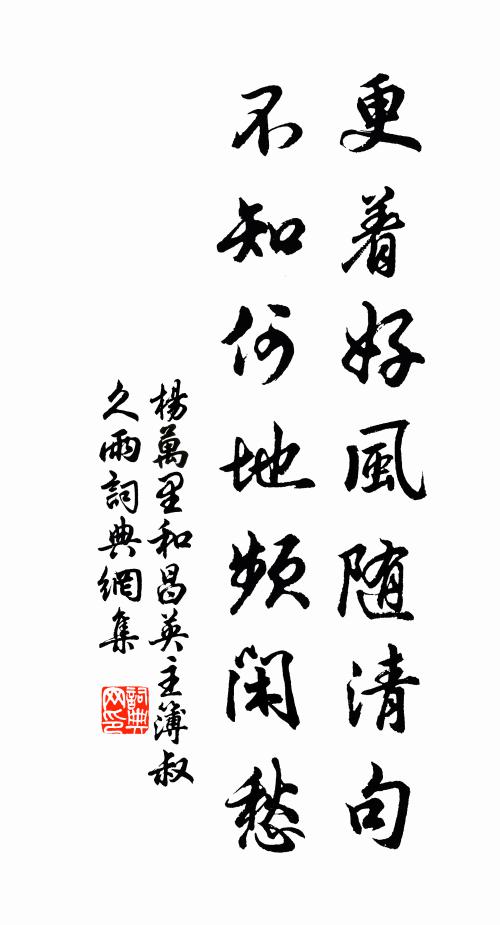 更着好風随清句
不知何地頻閑愁
楊萬里和昌英主簿叔
久雨詞典網集
詞典
网印